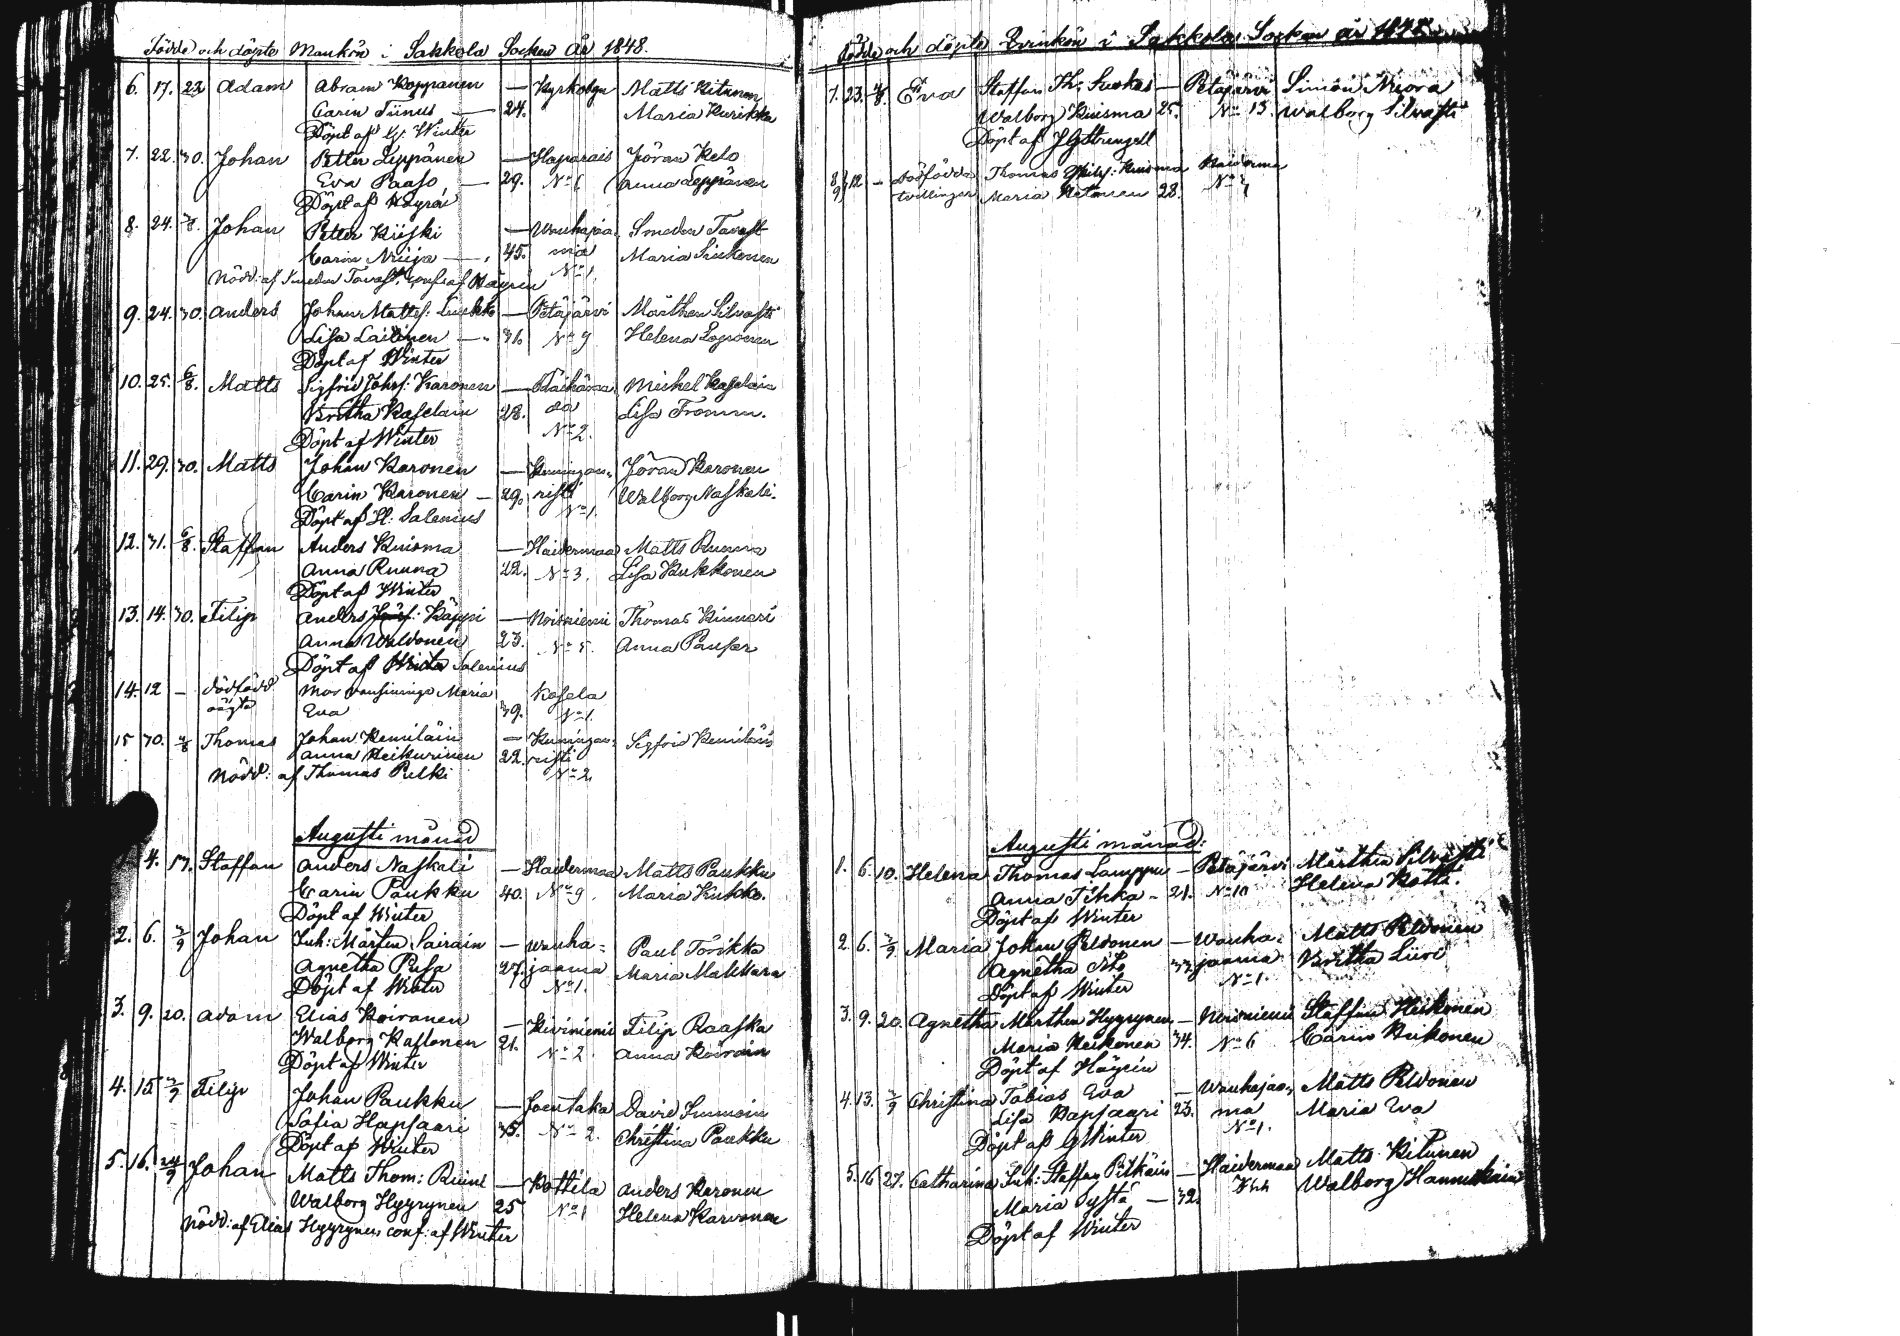 Födde och döpte Mankön i Sakkola Socken År 1848.
6. 17. 23 Adam Abram Koppanen — Kyrkobyn Matts Kitunen
Carin Tiinus — 24. Maria Kurikka
Döpt af Gr. Winter
7. 22. 30. Johan Petter Leppänen — Haparais Jöran Kelo
Eva Paaso — 29. No 6 Anna Leppänen
Döpt af Häyrén
8. 24. Johan Petter Kiiski — Wanhajaa Smeden Tavast
Carin — 45. ma Maria
No 1.
Nödd: af Smeden Tavast, conf. af Häyrén
9. 24. 30. Anders Johan Matts: Liukko — Petäjärvi Märthen Silvasti
Lisa Laitinen — 31. No 9 Helena Loponen
Döpt af Winter
10. 25. 6/8. Matts Sigfrid Johs: Karonen — Michel Kaselain
Britha Kaselain 28. Lisa Fromm.
No 2.
Döpt af Winter
11. 29. 30. Matts Johan Karonen — Kuningan- Jöran Karonen
Carin Karonen — 29. risti Walborg Naskali.
No 1.
Döpt af H: Salenius
12. 31. 6/8 Staffan Anders Kuisma — Haidermaa Matts Ruuna
Anna Ruuna 22. No 3. Lisa Kukkonen
Döpt af Winter
13. 14. 30. Filip Anders Käppi — Noisniemi Thomas Kinnari
Anna Waldonen 23. No 5. Anna Pauser
Döpt af Salenius
14. 12 — dödfödd Maria Kasela
oägta Eva 39. No 1.
15 30. Thomas Johan Kemiläin — Kuningan- Sigfrid Kemiläin
Anna Heikurinen 22. risti
Nödd: af Thomas Pulki No 2.
Augusti månad
4. 17. Staffan Anders Naskali — Haidermaa Matts Paukku
Carin Paukku 40. No 9. Maria Kukko.
Döpt af Winter
2. 6. 3/9 Johan Inh: Mårten Sairain — Wanha- Paul Törikka
Agnetha Pusa 27. jaama Maria Makkara
Döpt af Winter No 1.
3. 9. 20. Adam Elias Koiranen — Kiviniemi Filip Raaska
Walborg Kaslonen 21. No 2. Anna Koirain
Döpt af Winter
4. 15. 3/9 Filip Johan Paukku — Joentaka David Immoin
Sofia Hapsaari 35. No 2. Christina Paukku
Döpt af Winter
5. 16. 24/9 Johan Matts Thom: — Kottila Anders Karonen
Walborg Hyyrynen 25 No 1 Helena Karvonen
Nödd: af Elias Hyyrynen conf: af Winter
Födde och döpte Qvinkön i Sakkola Socken år 1848
7. 23. Eva Staffan Th: — Petäjärvi Simon
Walborg Kuisma 25. No 13. Walborg Silvasti
Döpt af J G Strengell
8 9 12 — dödfödda Thomas Kuisma Haiderma
tvillingar Maria 28. No
Augusti månad:
1. 6. 10. Helena Thomas Lamppu — Petäjärvi Märthen Silvasti
Anna Tikka - 21. No 10 Helena Kotti.
Döpt af Winter
2. 6. 3/9 Maria Johan Peldonen — Wanha- Matts Peldonen
Agnetha 33. jaama Britha
Döpt af Winter No 1.
3. 9. 20. Agnetha Märthen Hyyrynen — Noisniemi Staffan Heikonen
Maria Heikonen 34. No 6 Carin Heikonen
Döpt af Häyrén
4. 13. 3/9 Christina Tobias Eva — Wanhajaa- Matts Peldonen
Lisa Hapsaari 23. ma Maria Eva
No 1.
Döpt af G Winter
5. 16 27. Catharina Inh: Staffan Pitkäin — Haidermaa Matts Kitunen
Maria — 32. Walborg Hannukain
Döpt af Winter